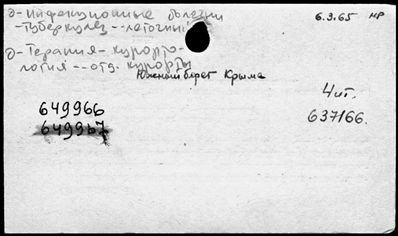 д-Инфекционные болезни
-Туберкулез--легочный
6.3.65 нр
д-Терапия-курорто-
логия--отд. курорты
Южный берег Крыма
4 шт.
649966
649967
637166.